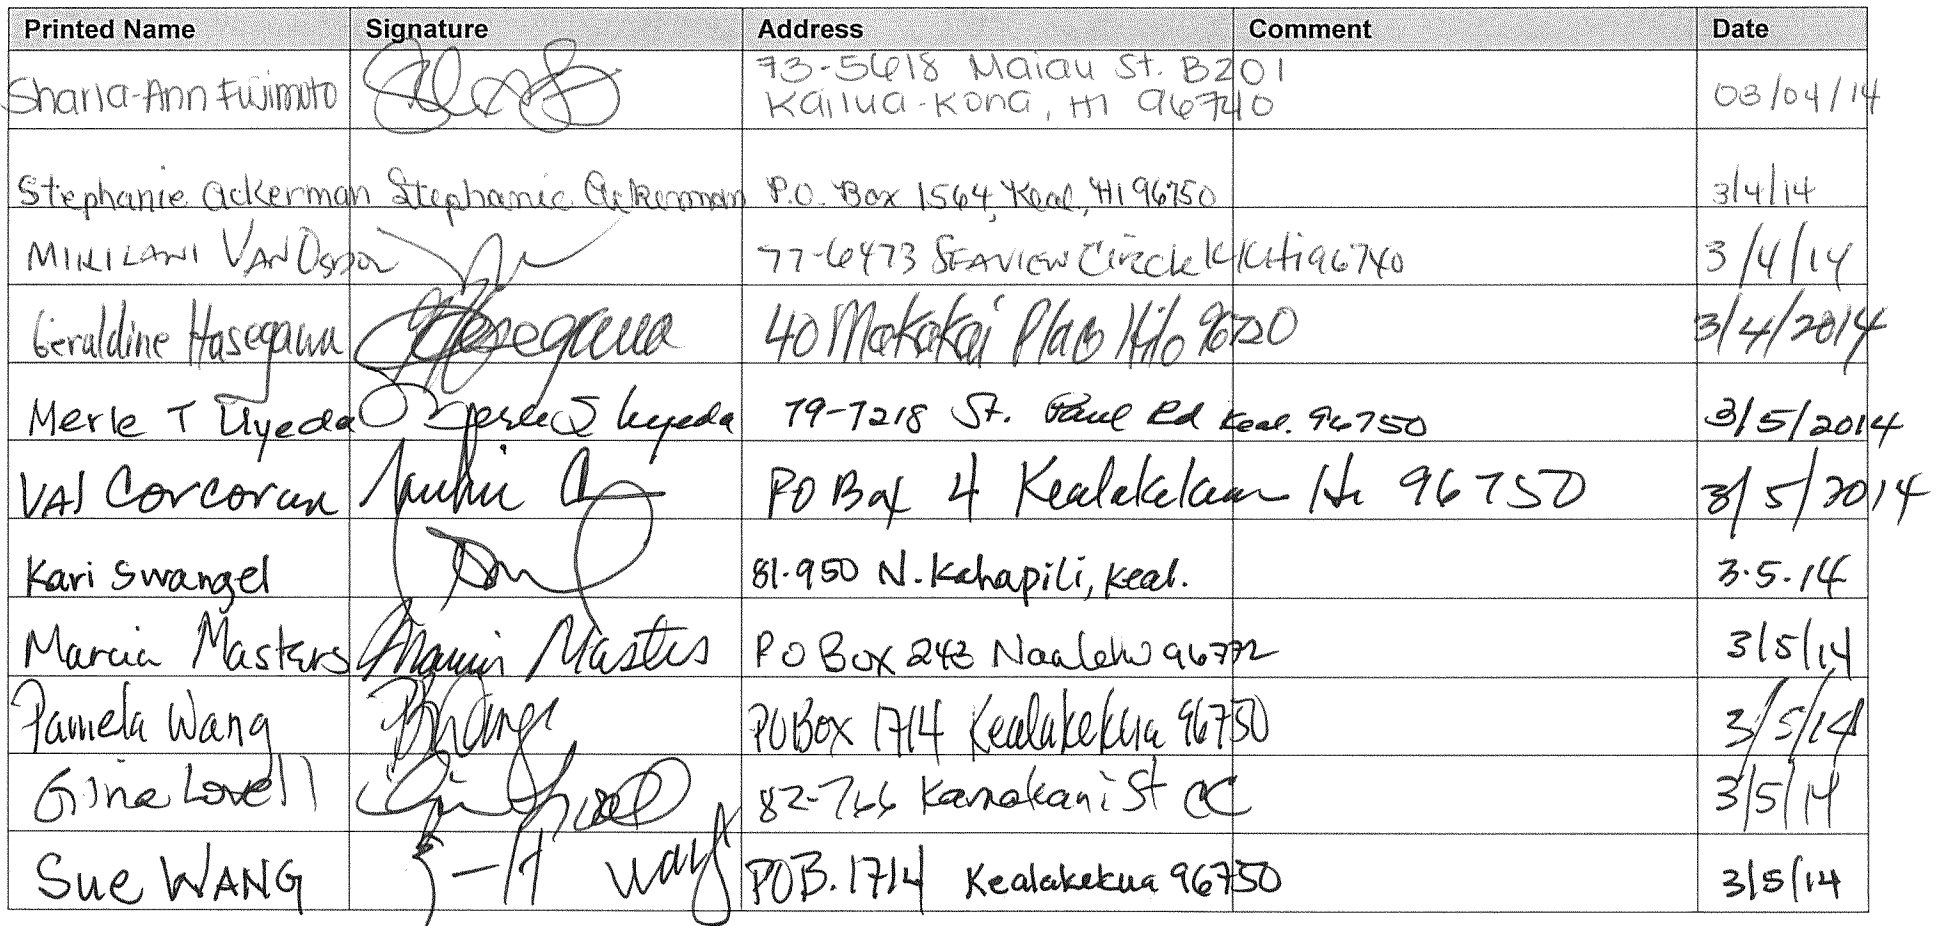 Printed Name Signature Address Comment Date
Sharla-Ann Fujimoto 73-5618 Maiau St. B201
Kailua-Kona, HI 96740 03/04/14
Stephanie Ackerman Stephanie Ackerman P.O. Box 1564, Keal, HI 96750 3/4/14
MIKILANI 77-6473 SEAVIEW Circle KK Hi 96740 3/4/14
Geraldine Hasegawa Hasegawa 40 Makakai Place Hilo 96720 3/4/2014
Merle T Uyeda Merle T Uyeda 79-7218 St. Paul Rd Keal. 96750 3/5/2014
VAl Corcoran PO Box 4 Kealakekua Hi 96750 3/5/2014
Kari Swangel 81-950 N. Kahapili, Keal. 3.5.14
Marcia Masters Marcia Masters PO Box 243 Naalehu 96772 3/5/14
Pamela Wang PO Box 1714 Kealakekua 96750 3/5/14
Gina Lovell 82-766 St CC 3/5/14
Sue WANG Wang POB. 1714 Kealakekua 96750 3/5/14